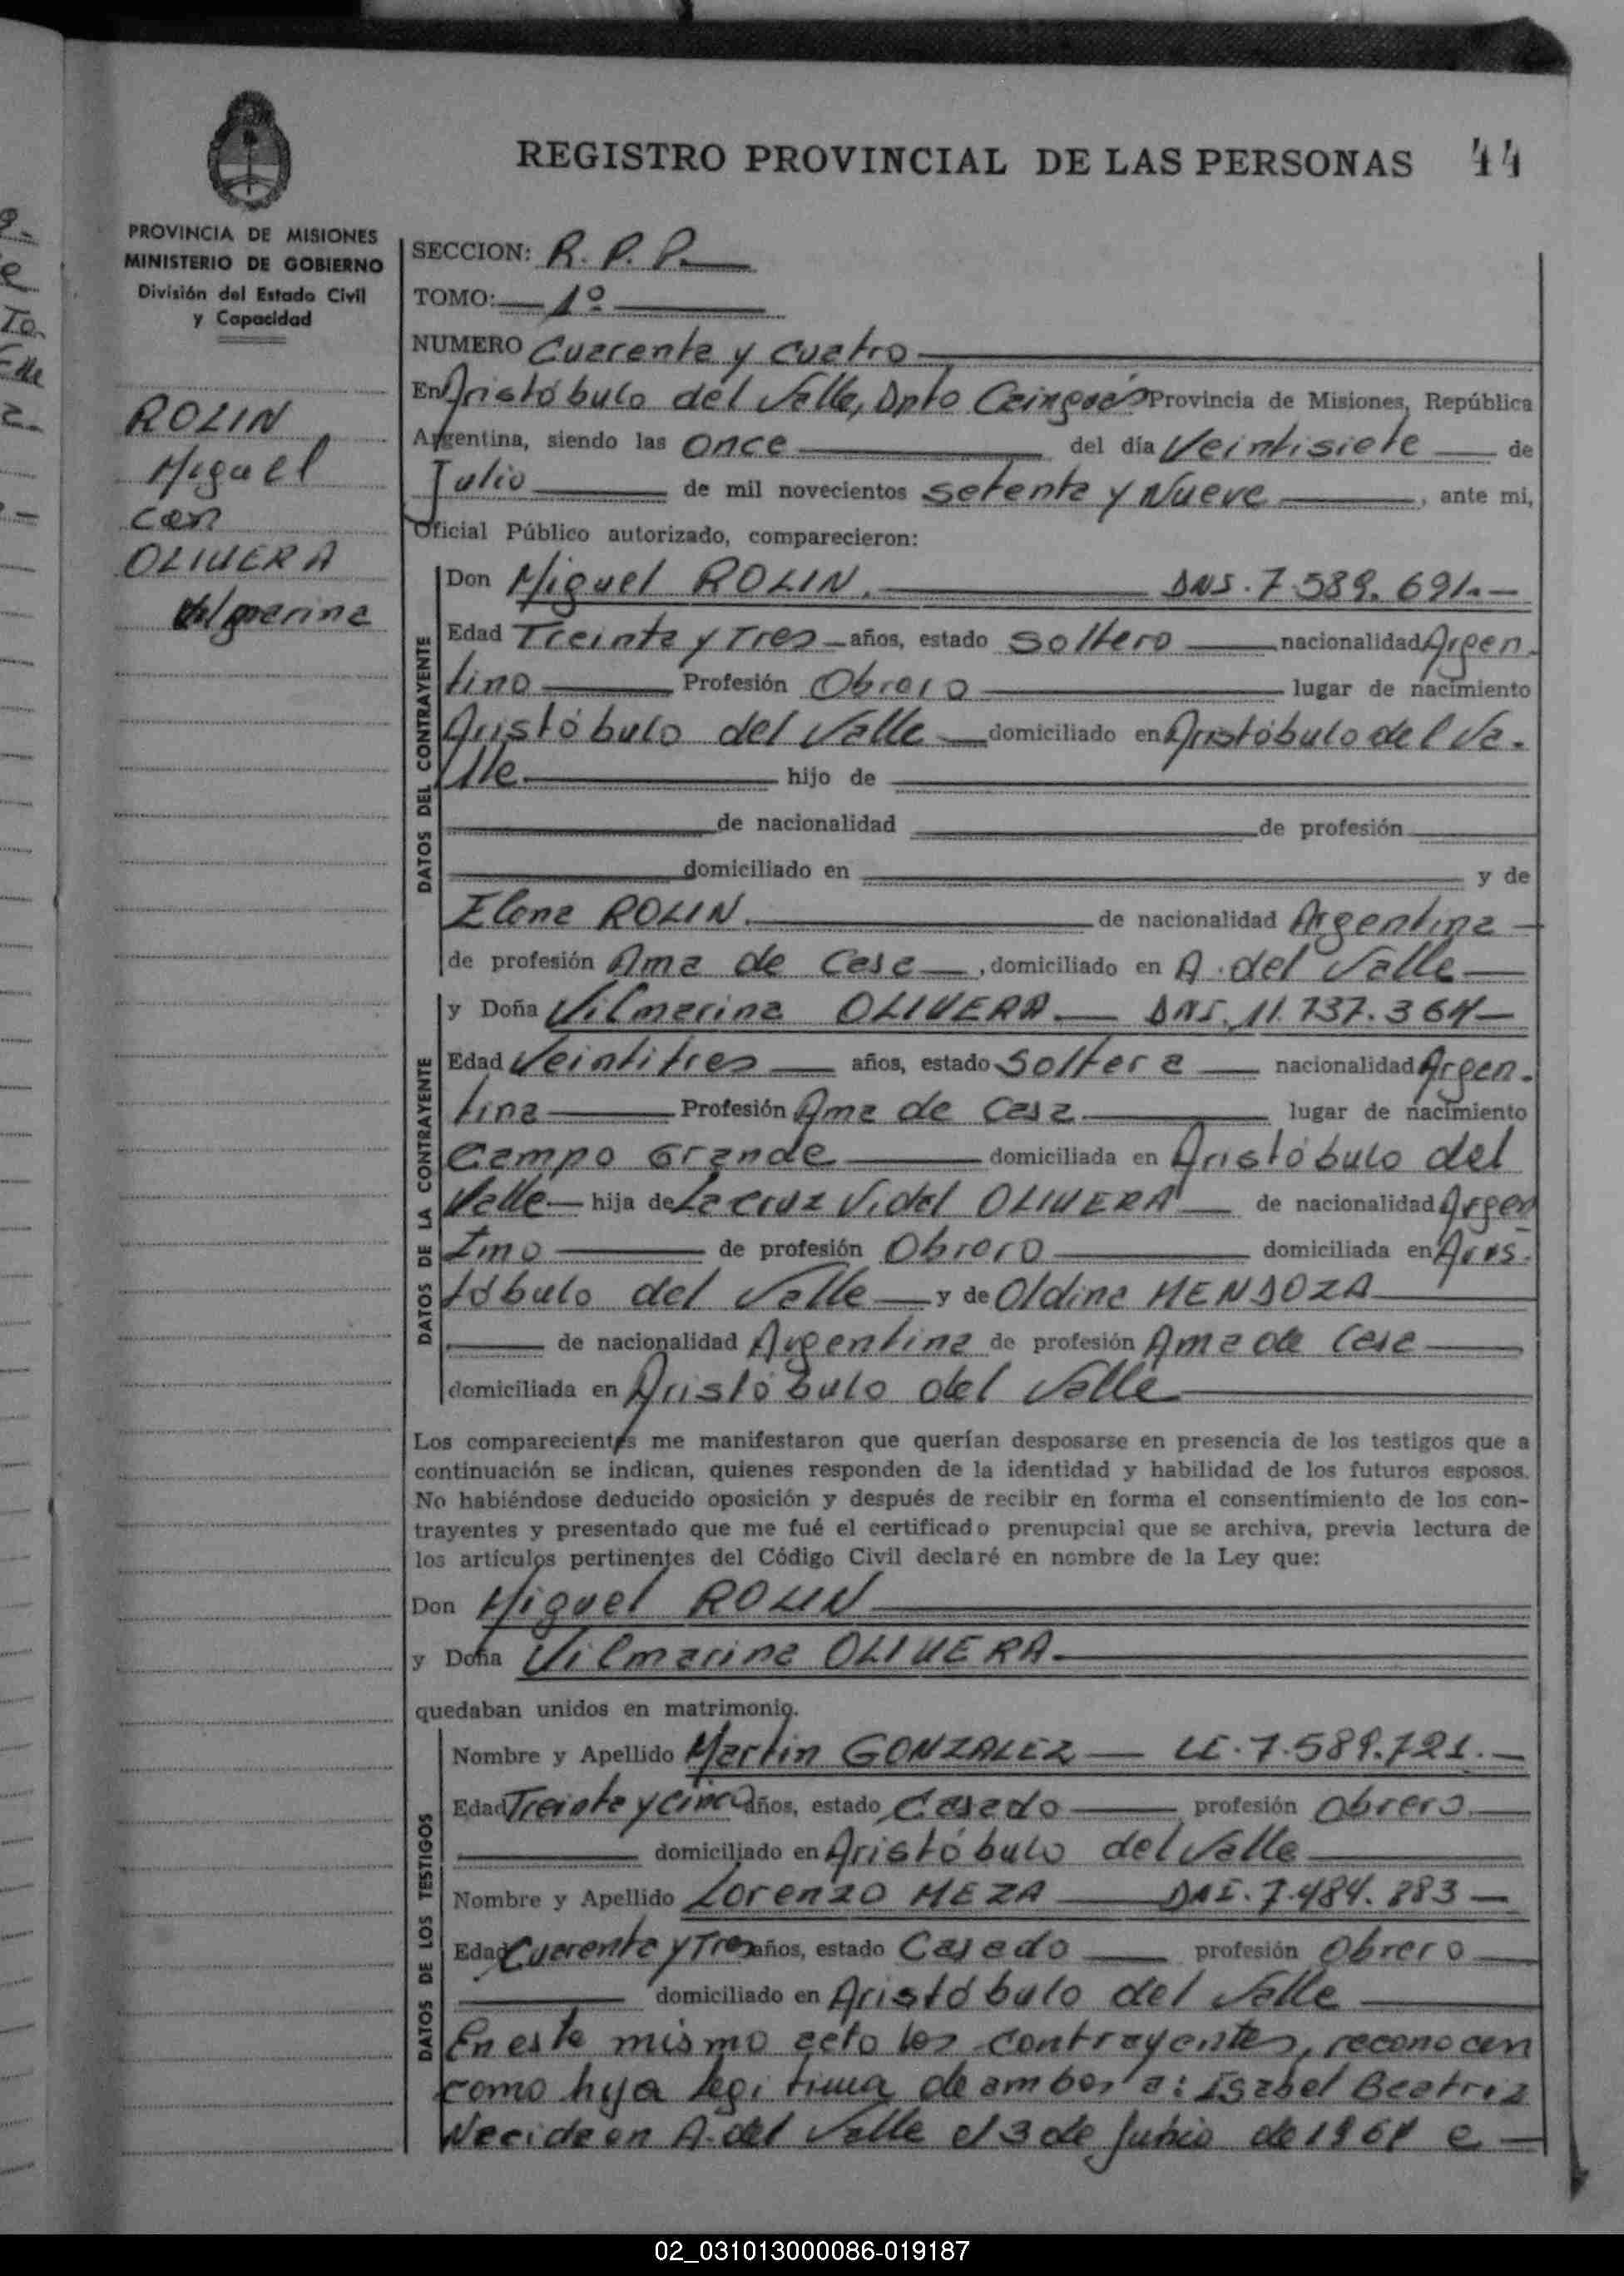 REGISTRO PROVINCIAL DE LAS PERSONAS 44
PROVINCIA DE MISIONES
MINISTERIO DE GOBIERNO
División del Estado Civil
y Capacidad
ROLIN
Miguel
con
OLIVERA
Vilmarina
SECCION: R. P. P.
TOMO: 1º
NUMERO Cuarenta y cuatro
En Aristóbulo del Valle, Dpto Cainguás Provincia de Misiones, República
Argentina, siendo las once del día Veintisiete de
Julio de mil novecientos setenta y Nueve, ante mi,
Oficial Público autorizado, comparecieron:
DATOS DEL CONTRAYENTE
Don Miguel ROLIN. DNI. 7.589.691.-
Edad Treinta y Tres años, estado soltero nacionalidad Argen-
tino Profesión Obrero lugar de nacimiento
Aristóbulo del Valle domiciliado en Aristóbulo del Va-
lle hijo de
de nacionalidad de profesión
domiciliado en y de
Elena ROLIN. de nacionalidad Argentina
de profesión Ama de Casa, domiciliado en A. del Valle
DATOS DE LA CONTRAYENTE
y Doña Vilmarina OLIVERA DNI. 11.737.364-
Edad Veintitres años, estado Soltera nacionalidad Argen-
tina Profesión Ama de Casa lugar de nacimiento
Campo Grande domiciliada en Aristóbulo del
Valle hija de La Cruz Vidal OLIVERA de nacionalidad Argen
tino de profesión Obrero domiciliada en Aris-
tóbulo del Valle y de Oldina MENDOZA
de nacionalidad Argentina de profesión Ama de Casa
domiciliada en Aristóbulo del Valle
Los comparecientes me manifestaron que querían desposarse en presencia de los testigos que a
continuación se indican, quienes responden de la identidad y habilidad de los futuros esposos.
No habiéndose deducido oposición y después de recibir en forma el consentimiento de los con-
trayentes y presentado que me fué el certificado prenupcial que se archiva, previa lectura de
los artículos pertinentes del Código Civil declaré en nombre de la Ley que:
Don Miguel ROLIN
y Doña Vilmarina OLIVERA.
quedaban unidos en matrimonio.
DATOS DE LOS TESTIGOS
Nombre y Apellido Martin GONZALEZ LE. 7.589.721.-
Edad Treinta y Cinco años, estado Casado profesión Obrero
domiciliado en Aristóbulo del Valle
Nombre y Apellido Lorenzo MEZA DNI. 7.484.883-
Edad Cuarenta y Tres años, estado Casado profesión Obrero
domiciliado en Aristóbulo del Valle
En este mismo acto los contrayentes, reconocen
como hija legitima de ambos a: Isabel Beatriz
Nacida en A. del Valle el 3 de Junio de e
02_031013000086-019187